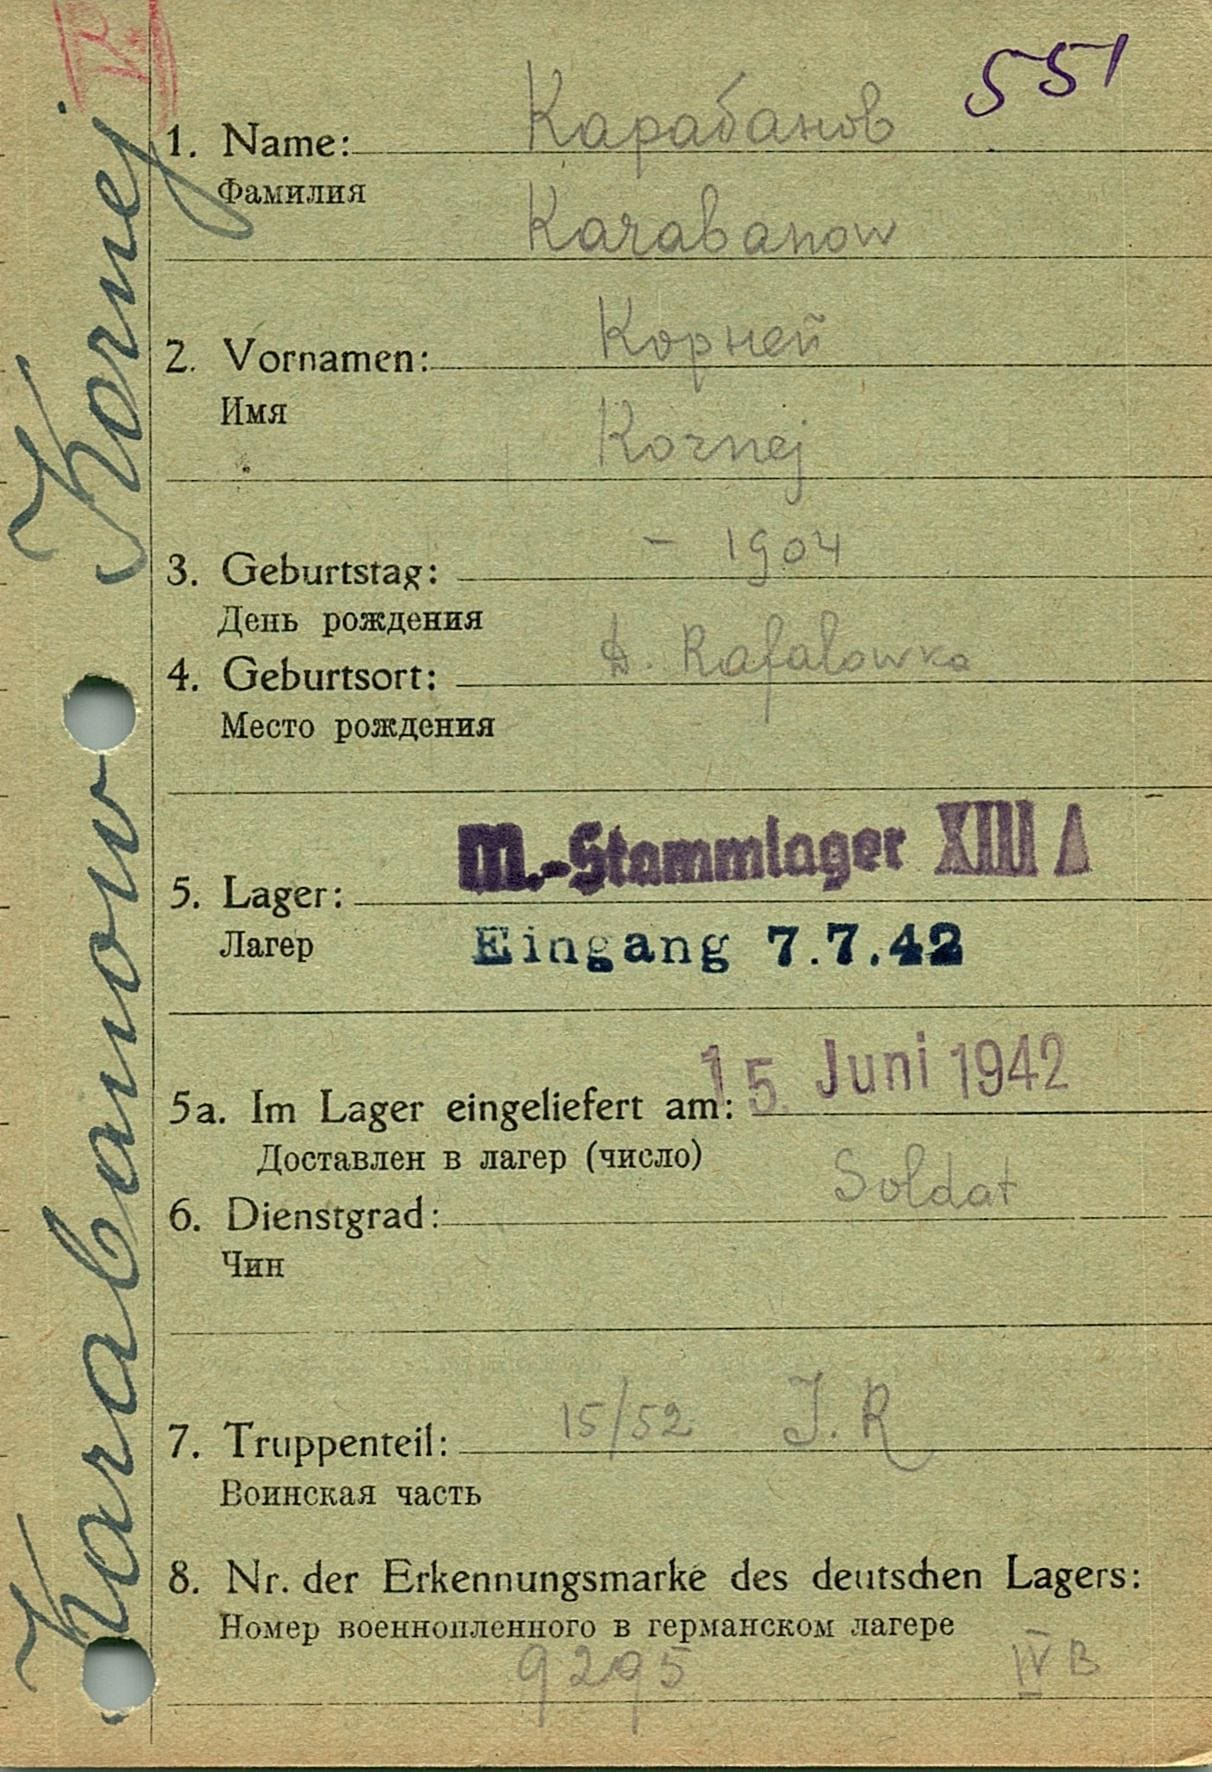 551
1. Name: Карабанов
Фамилия
Karabanow
2. Vornamen: Корней
Имя
Kornej
3. Geburtstag: – 1904
День рождения
4. Geburtsort: D. Rafalowka
Место рождения
M.-Stammlager XIII A
5. Lager:
Лагер
Eingang 7.7.42
5a. Im Lager eingeliefert am: 15. Juni 1942
Доставлен в лагер (число)
6. Dienstgrad: Soldat
Чин
7. Truppenteil: 15/52 J. R
Воинская часть
8. Nr. der Erkennungsmarke des deutschen Lagers:
Номер военнопленного в германском лагере
9295 IV B
Karabanow Kornej